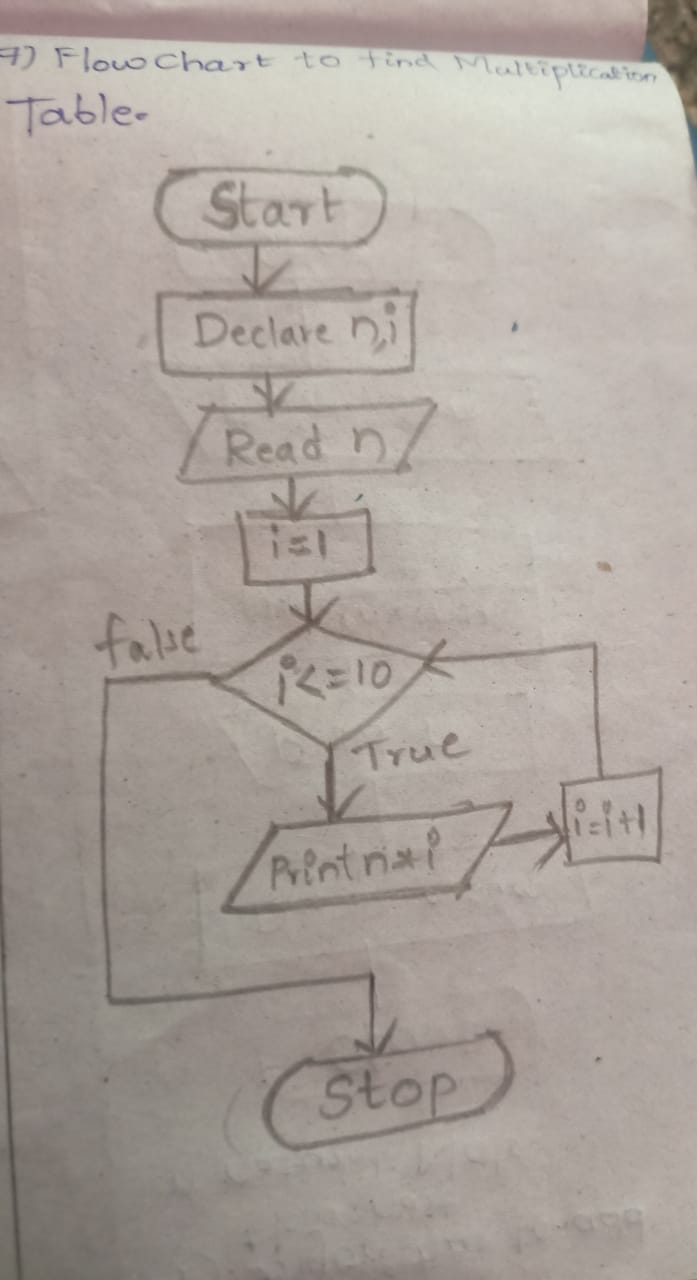 7) Flow Chart to find Multiplication
Table.
Start
Declare n,i
Read n
i=1
false
i<=10
True
Print n*i
i=i+1
Stop